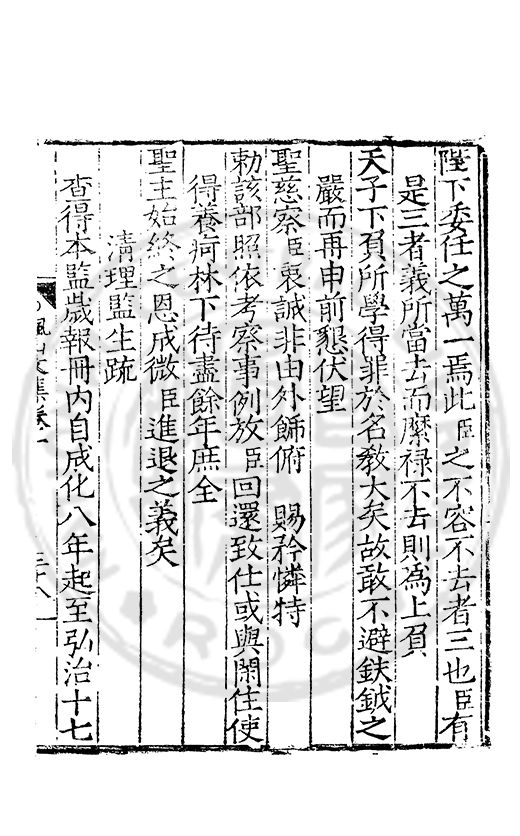 陛下委任之萬一焉此臣之不容不去者三也臣有
是三者義所當去而縻禄不去則為上負
天子下負所學得罪於名敎大矣故敢不避鈇鉞之
嚴而再申前懇伏望
聖慈察臣衷誠非由外飾俯賜矜憐特
勑該部照依考察事例放臣回還致仕或與閑住使
得養疴林下待盡餘年庶全
聖主始終之恩成微臣進退之義矣
清理監生疏
查得本監歲報冊内自成化八年起至弘治十七
楓山文集卷一
三十八